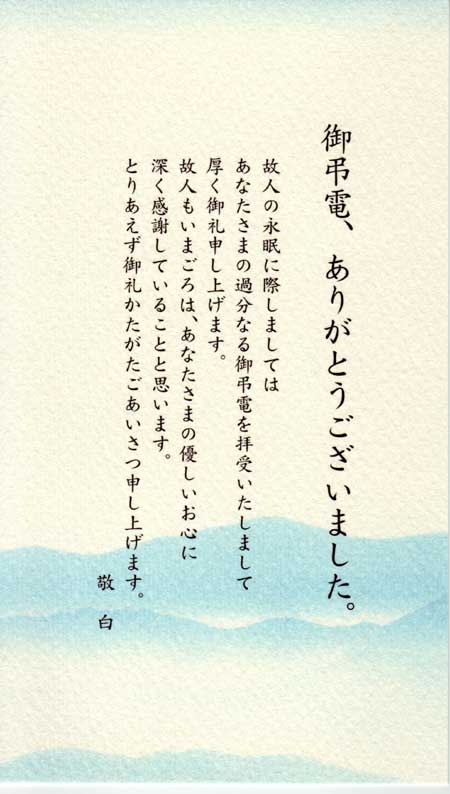 御弔電、ありがとうございました。
故人の永眠に際しましては
あなたさまの過分なる御弔電を拝受いたしまして
厚く御礼申し上げます。
故人もいまごろは、あなたさまの優しいお心に
深く感謝していることと思います。
とりあえず御礼かたがたごあいさつ申し上げます。
敬白